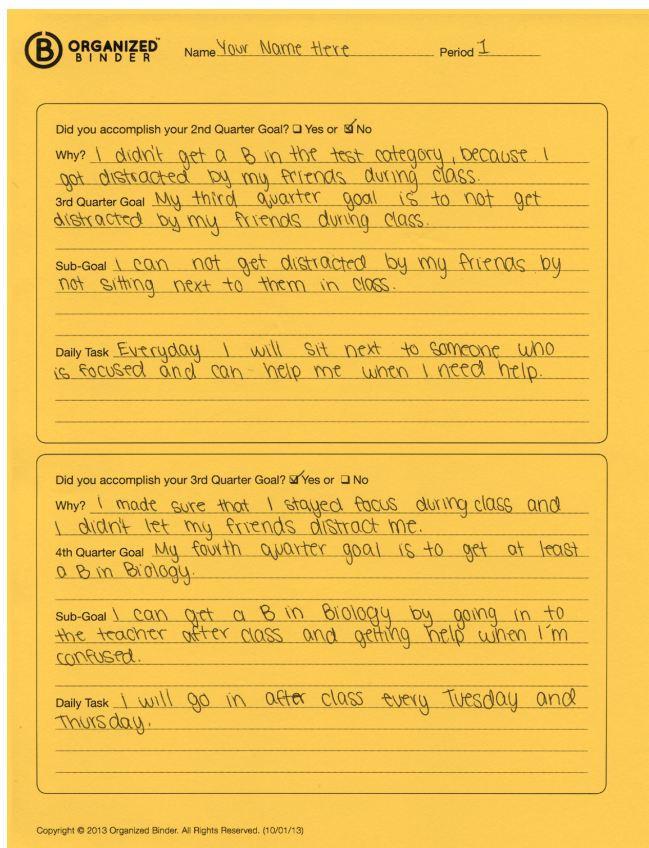 B ORGANIZED™
BINDER
Name Your Name Here Period 1
Did you accomplish your 2nd Quarter Goal? ☐ Yes or ☑ No
Why? I didn't get a B in the test category, because I
got distracted by my friends during class.
3rd Quarter Goal My third quarter goal is to not get
distracted by my friends during class.
Sub-Goal I can not get distracted by my friends by
not sitting next to them in class.
Daily Task Everyday I will sit next to someone who
is focused and can help me when I need help.
Did you accomplish your 3rd Quarter Goal? ☑ Yes or ☐ No
Why? I made sure that I stayed focus during class and
I didn't let my friends distract me.
4th Quarter Goal My fourth quarter goal is to get at least
a B in Biology.
Sub-Goal I can get a B in Biology by going in to
the teacher after class and getting help when I'm
confused.
Daily Task I will go in after class every Tuesday and
Thursday.
Copyright © 2013 Organized Binder. All Rights Reserved. (10/01/13)